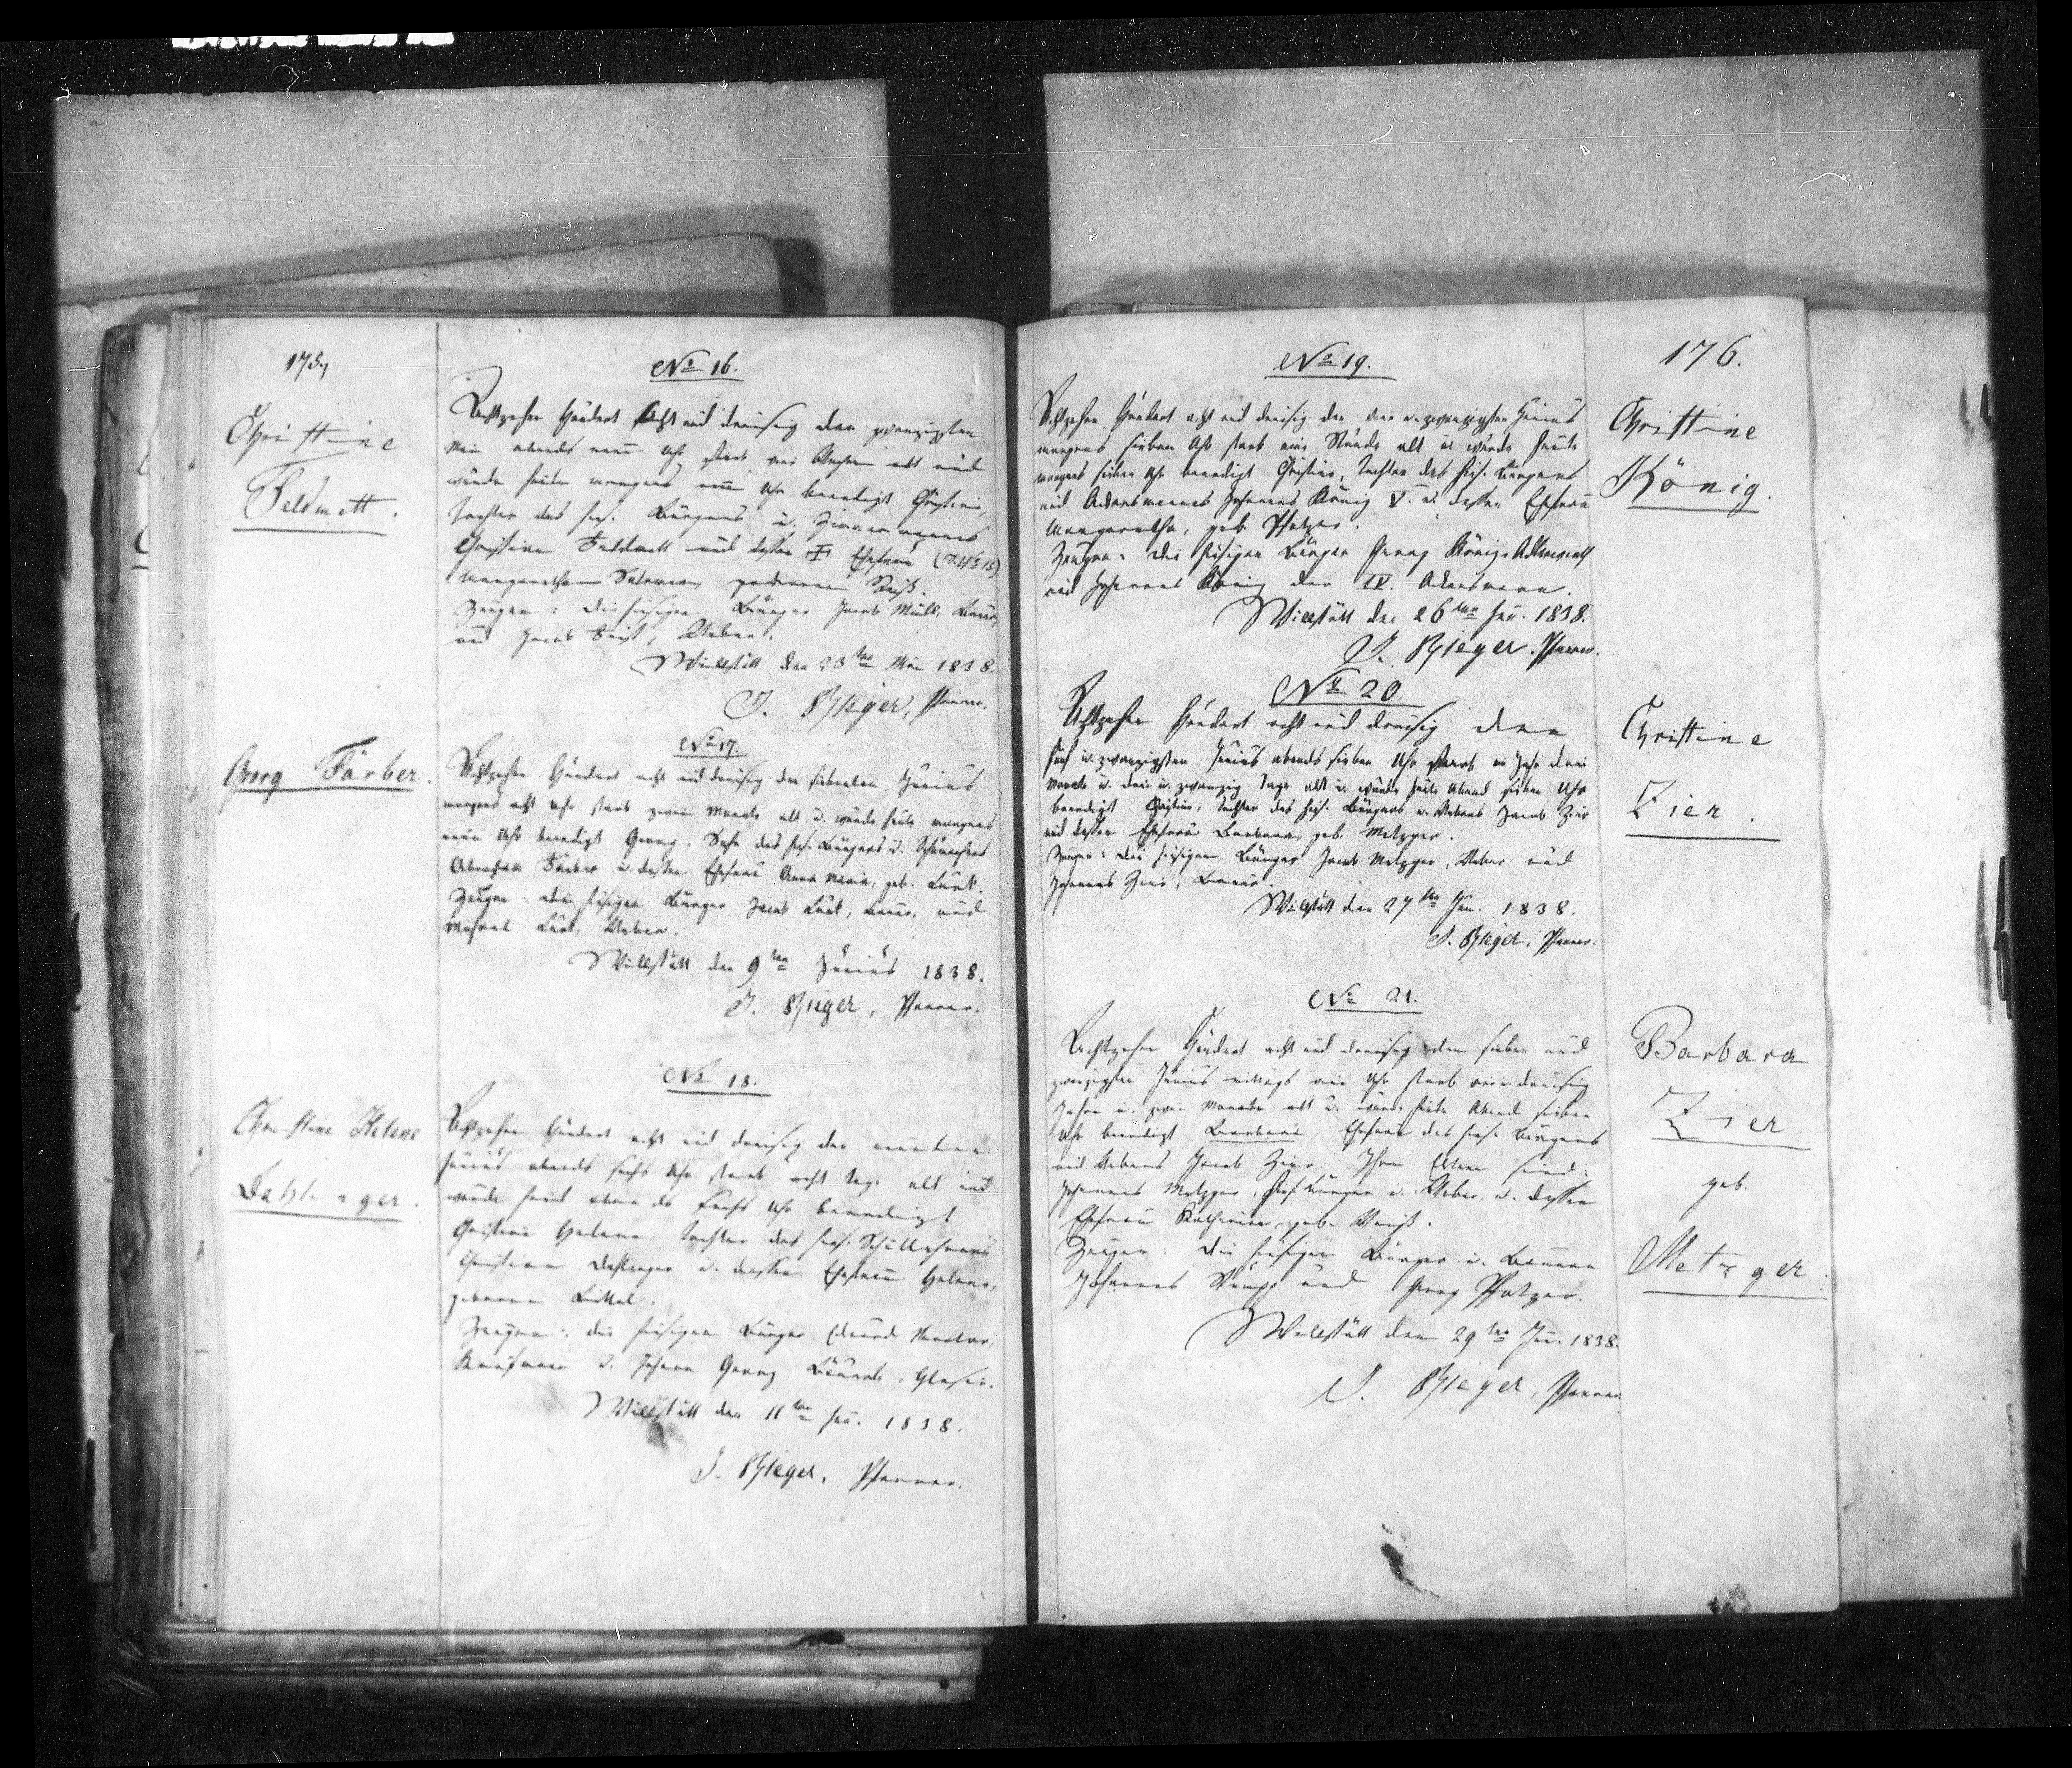 175,
Christine
Feldmatt.
No 16.
Achtzehn Hundert acht und dreißig den zwanzigsten
Mai abends neun Uhr starb drei Wochen alt und
wurde heute morgens neun Uhr beerdigt Christine,
Tochter des hies. Bürgers u. Zimmermanns
Christian Feldmatt und dessen Ehefrau
Margaretha Salomea geborenen
Zeugen: die hiesigen Bürger Jacob Müll, Bauer,
und Jacob Weber.
Willstätt den 23ten Mai 1838.
J. Rieger, Pfarrer.
Georg Färber.
No 17.
Achtzehn Hundert acht und dreißig den siebenten Junius
morgens acht Uhr starb zwei Monate alt u. wurde heute morgens
neun Uhr beerdigt Georg, Sohn des hies. Bürgers u. Schumachers
Abraham Färber u. dessen Ehefrau Anna Maria, geb. Lurk.
Zeugen: die hiesigen Bürger Jacob Lurk, Bauer, und
Michael Lurk, Weber.
Willstätt den 9ten Junius 1838.
J. Rieger, Pfarrer.
Christine Helene
Dahlinger.
No 18.
Achtzehn Hundert acht und dreißig den neunten
Junius abends sechs Uhr starb acht Tage alt und
wurde heute abends sechs Uhr beerdigt
Christine Helene, Tochter des hies. Schullehrers
Christian Dahlinger u. dessen Ehefrau Helene,
geborene
Zeugen: die hiesigen Bürger Eduard
Kaufmann u. Johann Georg Glaser.
Willstätt den 11ten Jun. 1838.
J. Rieger, Pfarrer.
176.
No 19.
Christine
König.
Achtzehn Hundert acht und dreißig den vier u. zwanzigsten Junius
morgens sieben Uhr starb eine Stunde alt u. wurde heute
morgens sieben Uhr beerdigt Christine, Tochter des hies. Bürgers
und Ackersmannes Johannes König V. u. dessen Ehefrau
Margaretha, geb. Pfotzer.
Zeugen: die hiesigen Bürger Georg König, Ackerswirth
und Johannes König der IV. Ackersmann.
Willstätt den 26ten Jun. 1838.
J. Rieger, Pfarrer.
No 20.
Christine
Zier.
Achtzehn Hundert acht und dreißig den
fünf u. zwanzigsten Junius abends sieben Uhr starb ein Jahr drei
Monate u. drei u. zwanzig Tage alt u. wurde heute Abend sieben Uhr
beerdigt Christine, Tochter des hies. Bürgers u. Webers Jacob Zier
und dessen Ehefrau Barbara, geb. Metzger.
Zeugen: die hiesigen Bürger Jacob Metzger, Weber und
Johannes Zier, Bauer.
Willstätt den 27ten Jun. 1838.
J. Rieger, Pfarrer.
No 21.
Barbara
Zier
geb.
Metzger.
Achtzehn Hundert acht und dreißig den sieben und
zwanzigsten Junius mittags ein Uhr starb ein u. dreißig
Jahre u. zwei Monate alt u. wurde heute Abend sieben
Uhr beerdigt Barbara, Ehefrau des hies. Bürgers
und Webers Jacob Zier. Ihre Eltern sind:
Johannes Metzger, hies. Bürger u. Weber, u. dessen
Ehefrau Katharina, geb.
Zeugen: die hiesigen Bürger u. Bauern
Johannes und Georg Pfotzer.
Willstätt den 29ten Jun. 1838.
J. Rieger, Pfarrer